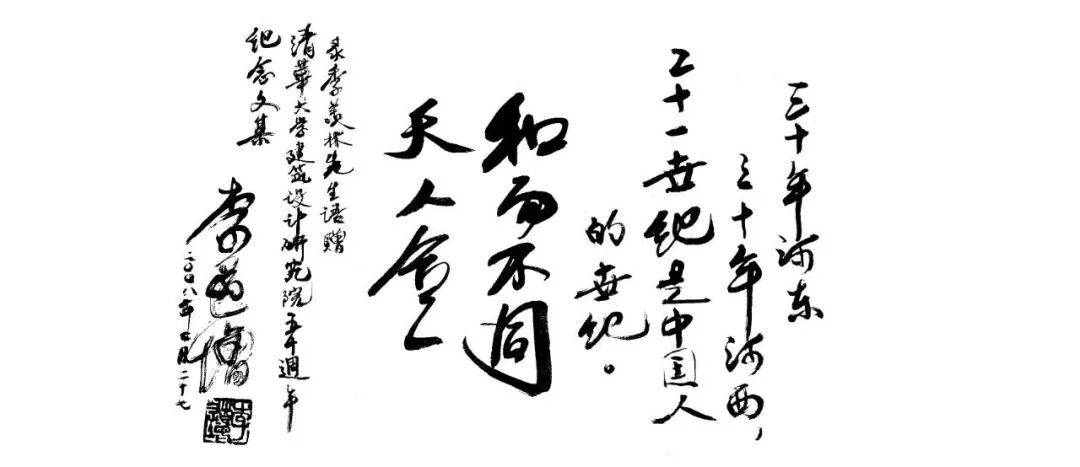 三十年河东
三十年河西，
二十一世纪是中国人
的世纪。
和而不同
天人合一
录季羡林先生语赠
清華大学建筑设计研究院五十週年
纪念文集
李道增
二〇〇八年七月二十七